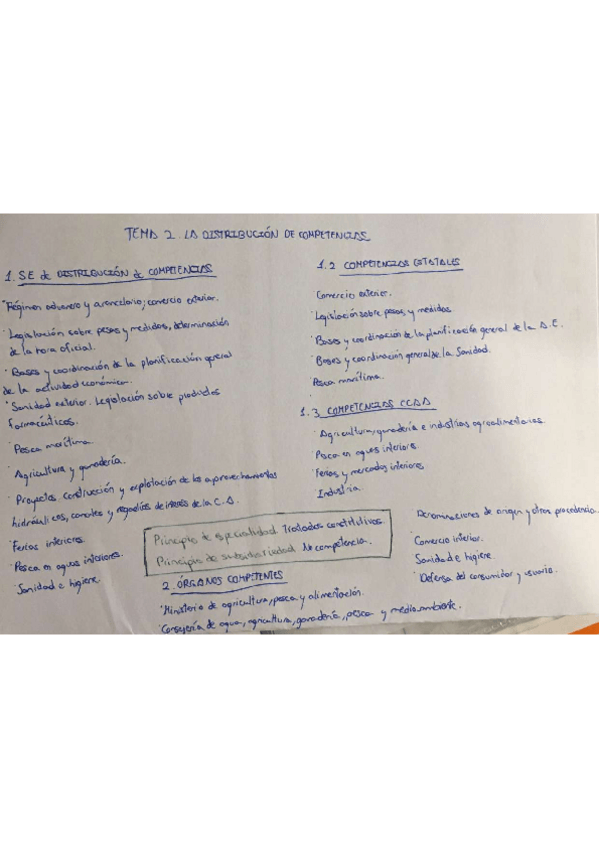 TEMA 2. LA DISTRIBUCIÓN DE COMPETENCIAS
1. S.E de DISTRIBUCIÓN de COMPETENCIAS
Régimen aduanero y arancelario; comercio exterior.
Legislación sobre pesas y medidas, determinación
de la hora oficial.
Bases y coordinación de la planificación general
de la actividad económica.
Sanidad exterior. Legislación sobre productos
farmacéuticos.
Pesca marítima.
Agricultura y ganadería.
Proyectos, construcción y explotación de los aprovechamientos
hidráulicos, canales y regadíos de interés de la C.A.
Ferias interiores.
Pesca en aguas interiores.
Sanidad e higiene.
1.2 COMPETENCIAS ESTATALES
Comercio exterior.
Legislación sobre pesas y medidas
Bases y coordinación de la planificación general de la A.E.
Bases y coordinación general de la Sanidad.
Pesca marítima.
1.3 COMPETENCIAS CCAA
Agricultura, ganadería e industrias agroalimentarias.
Pesca en aguas interiores.
Ferias y mercados interiores
Industria.
Denominaciones de origen y otras procedencia.
Comercio interior.
Sanidad e higiene.
Defensa del consumidor y usuario.
Principio de especialidad. Tratados constitutivos.
Principio de subsidiariedad. No competencia.
2 ÓRGANOS COMPETENTES
Ministerio de agricultura, pesca y alimentación.
Consejería de agua, agricultura, ganadería, pesca y medio ambiente.